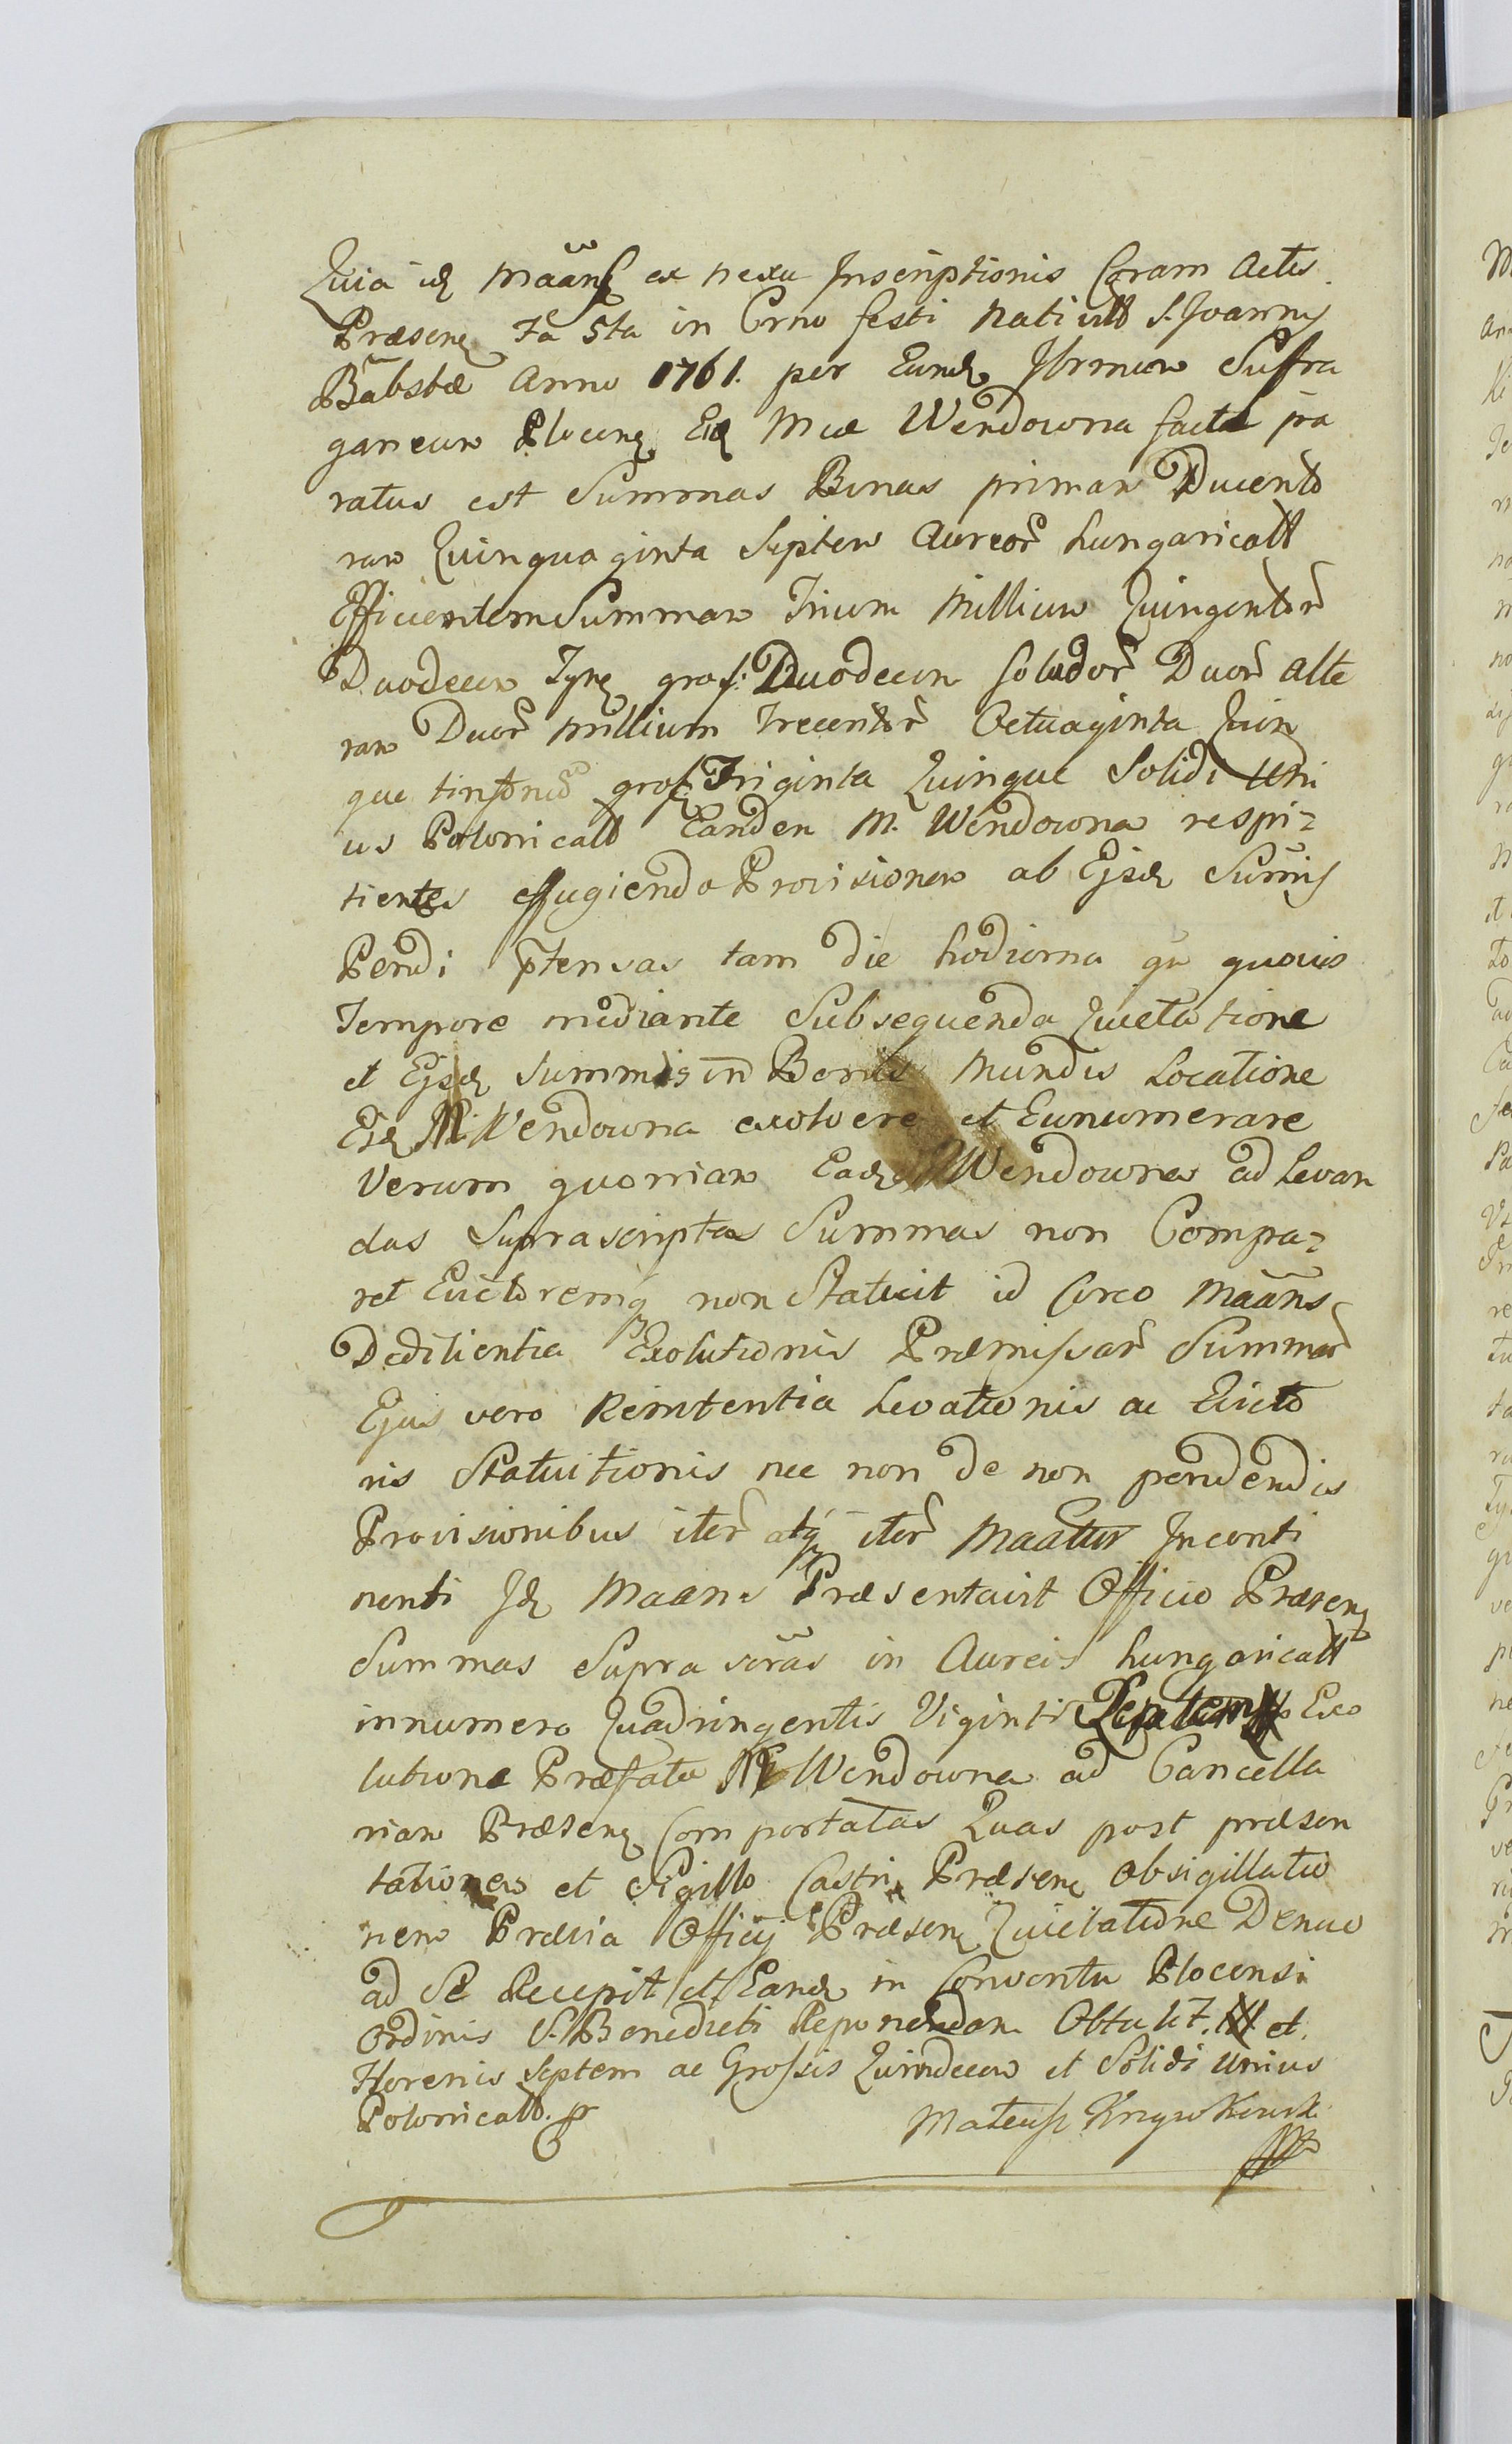 Quia id Maans ex nexu Inscriptionis Coram Actis
Præsen fa 5ta in Crno festi Nativitt S. Joannis
Babstæ Anno 1761. per Eund Illrmum Sufra
ganeum Plocen Eid Mcæ Wendowna factæ pa
ratus est Summas Binas primam Ducento
ram Quinquaginta Septem Aureor hungaricall
Efficientem Summam Trium Millium Quingentor
Duodecim Tynf gros: Duodecim solidor Duor Alte
ram Duor millium Trecentor Octuaginta Quin
que tinfonu gross Triginta Quinque Solidi Uni
us Polonicall Eandem M. Wendowna respi-
tientes effugiendo Provisionem ab Ejsd Sumis
Pendi ptensas tam die hodierna qu quovis
Tempore mediante Subsequenda Quietatione
et Ejsd summis in Bonis Mundis Locatione
Eid M. Wendowna exolvere et Eunumerare
Verum quoniam Ead M Wendowna ad Levan
das Suprascriptas Summas non Compa-
ret Evictoremq non Statuit id Circo Maans
Deditientia Exolutionis Præmissar Summar
Ejus vero Renitentia Levationis ac Evicto
ris Statuitionis nec non de non pendendis
Provisionibus iter atq iter Maatur Inconti
nenti Jd Maans Præsentavit Officio Præsen
Summas Supra scras in Aureis hungaricall
innumero Quadringentis Viginti Septem Exo
lutione Præfata M Wendowna ad Cancella
riam Præsen Comportatas Quas post præsen
tationem et Sigillo Castri Præsen Obsigillatio
nem Prævia Officij Præsen Quietatione Denuo
ad Se Recepit et Eand in Conventu Plocensi
Ordinis S. Benedicti Reponendam Obtulit. et.
Florenis Septem ac Grossis Quindecim et Solidi Unius
Polonicall.
Mateusz